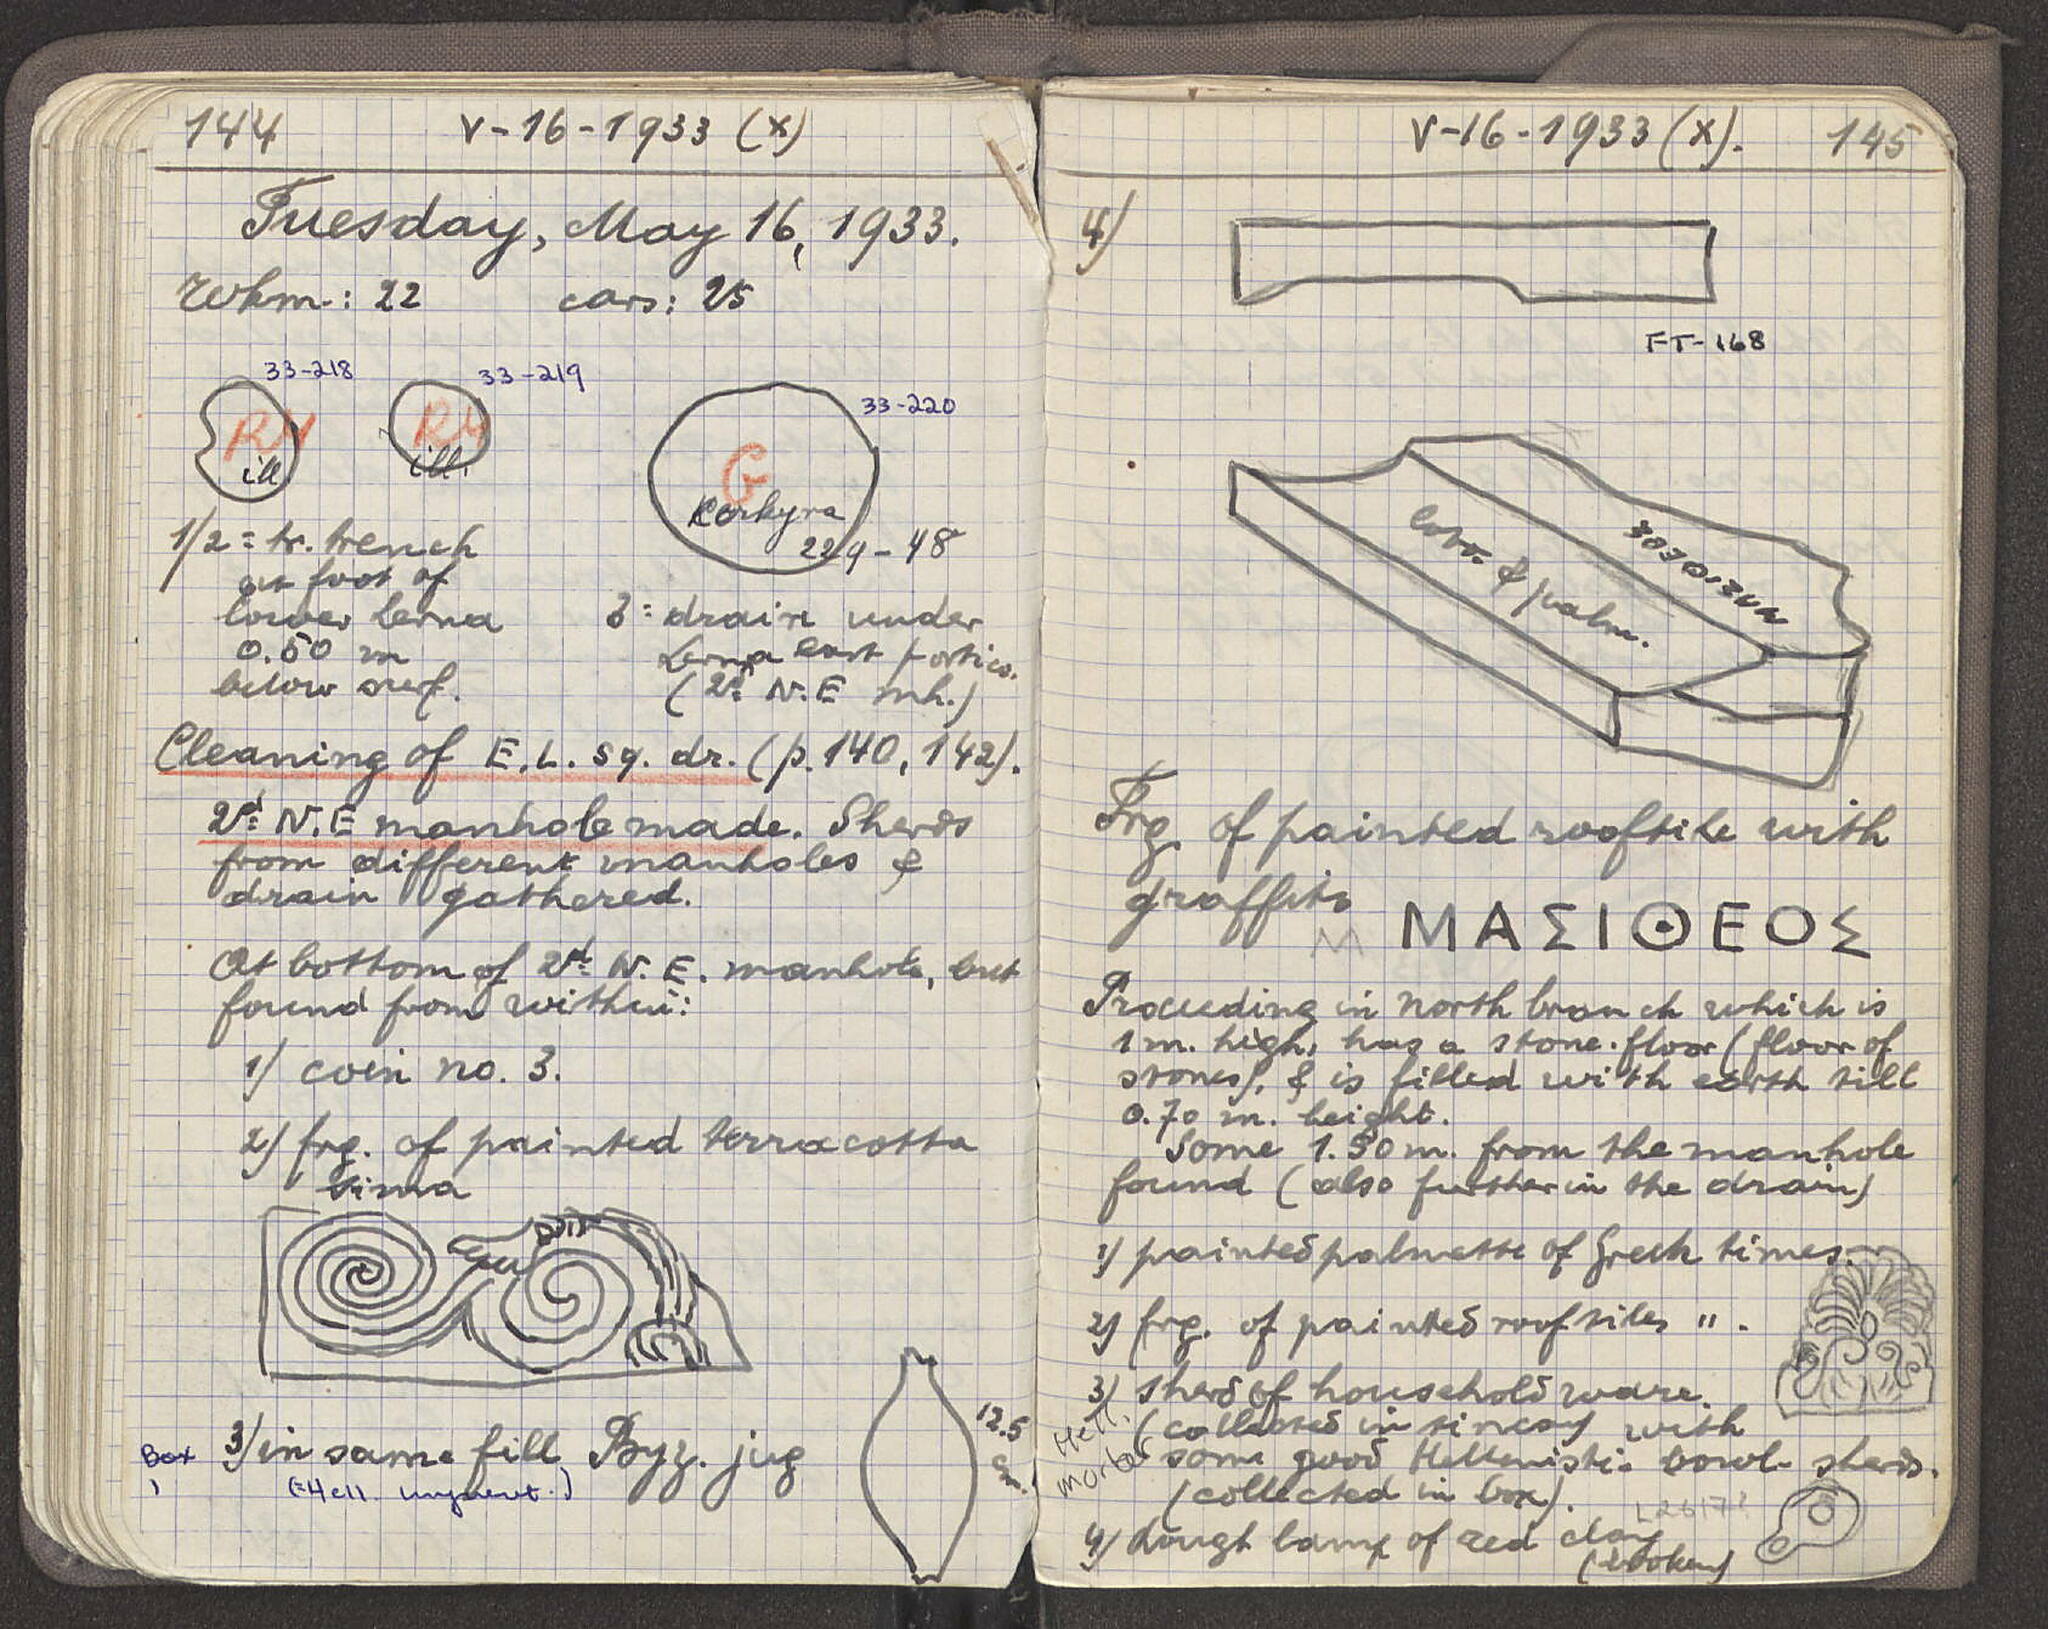 144 V-16-1933 (X)
Tuesday, May 16, 1933.
Wkm.: 22 cars: 25
33-218 33-219 33-220
R4 R4 G
ill ill. Kerkyra
229-48
1/2 = tr. trench
at foot of
lower Lerna
0.50 m
below surf.
3 = drain under
Lerna east portico.
(2d N.E mh.)
Cleaning of E.L. sq. dr. (p. 140, 142).
2d N.E manhole made. Sherds
from different manholes &
drain gathered.
At bottom of 2d N.E. manhole, but
found from within:
1) coin no. 3.
2) frg. of painted terracotta
sima
3) in same fill Byz. jug
Box
1
(=Hell. unguent.)
12.5
cm.
V-16-1933 (X). 145
4)
FT-168
Lotos & palm.
Frg. of painted rooftile with
graffito ΜΑΣΙΘΕΟΣ
M
Proceeding in north branch which is
1 m. high, has a stone-floor (floor of
stones), & is filled with earth till
0.70 m. height.
Some 1.50 m. from the manhole
found (also further in the drain)
1) painted palmette of Greek times.
2) frg. of painted rooftiles ".
3) sherd of household ware.
(collected in tincan) with
some good Hellenistic bowl-sherds.
(collected in box).
Hell.
mortar
L2617?
4) Rough lamp of red clay
(broken)